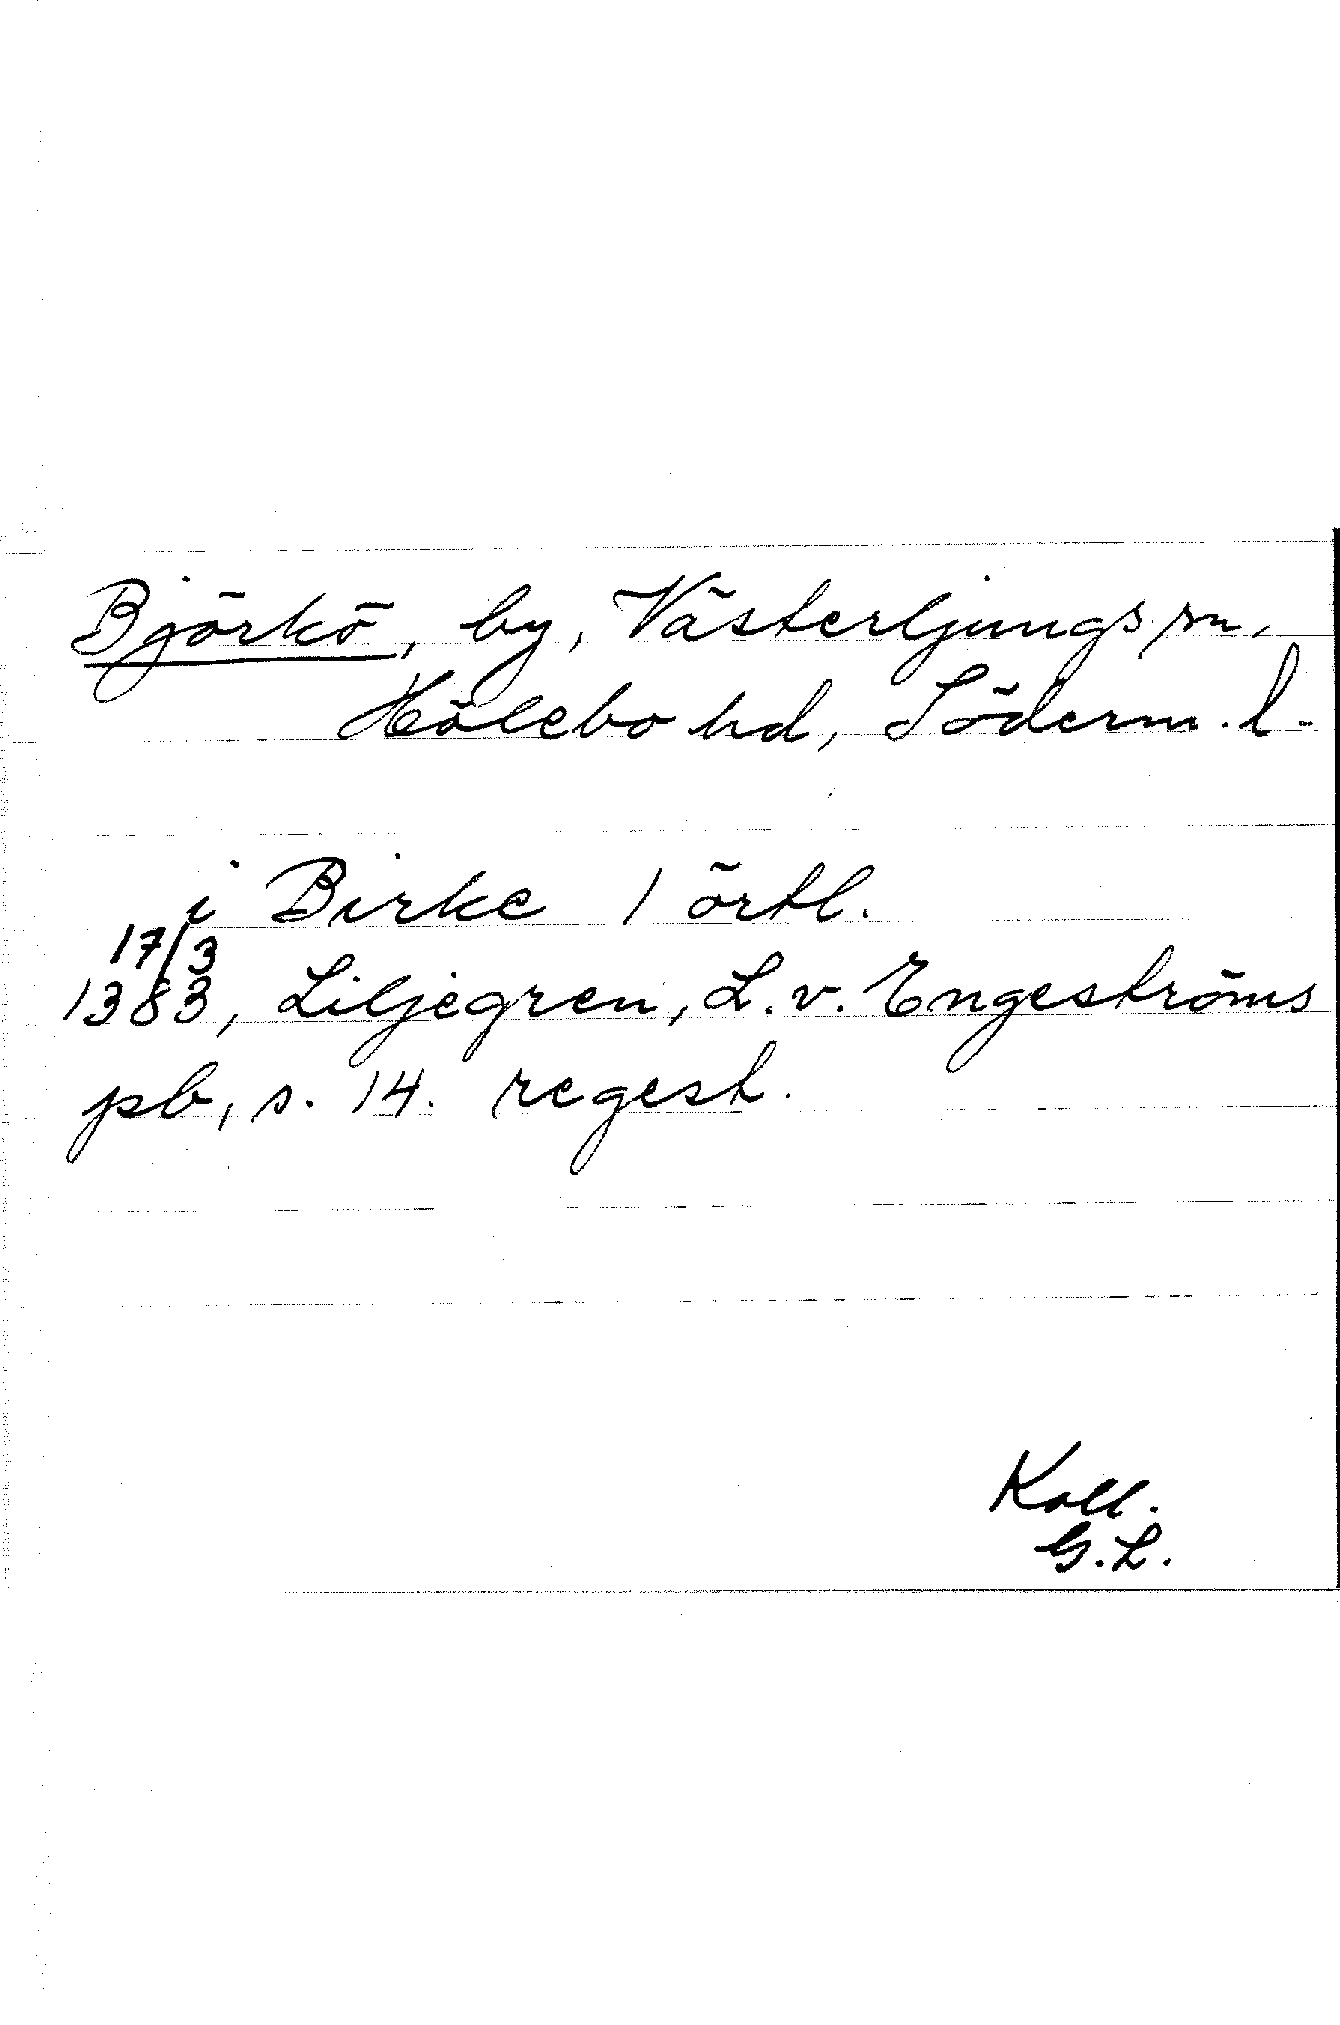 Björkö, by, Västerljungs sn,
Hölebo hd, Söderm. l.
i Birke 1 örtl.
17/3
1383, Liljegren, L. v. Engeströms
pb, s. 14. regest.
Koll.
G.L.